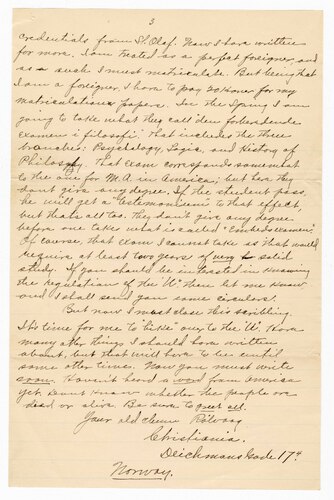 3
credentials from St. Olaf. Now I have written
for more. I am treated as a perfect foreigner, and
as a such I must matriculate. But being that
I am a foreigner, I have to pay 20 Kroner for my
matriculation papers. In the Spring I am
going to take what they call den forberedende
examen i filosofi. That includes the three
branches: Psychology, Logic, and History of
Philosophy. That exam corresponds somewhat
to the one for M.A. in America; but here they
don't give any degree. If the student pass,
he will get a "testimonium" to that effect,
but that's all too. They don't give any degree
before one takes what is called "Embedsexamen".
Of course, that exam I cannot take as that would
require at least two years of very solid
study. If you should be interested in knowing
the regulation of the "U" then let me know
and I shall send you some circulars.
But now I must close this scribbling.
It's time for me to "hike" over to the U. Have
many other things I should have written
about, but that will have to be until
some other times. Now you must write
soon. Haven't heard a word from America
yet. Don't know whether the people are
dead or alive. Be sure to greet all.
Your old chum
Christiania.
Deichmansgade 17⁴
Norway.